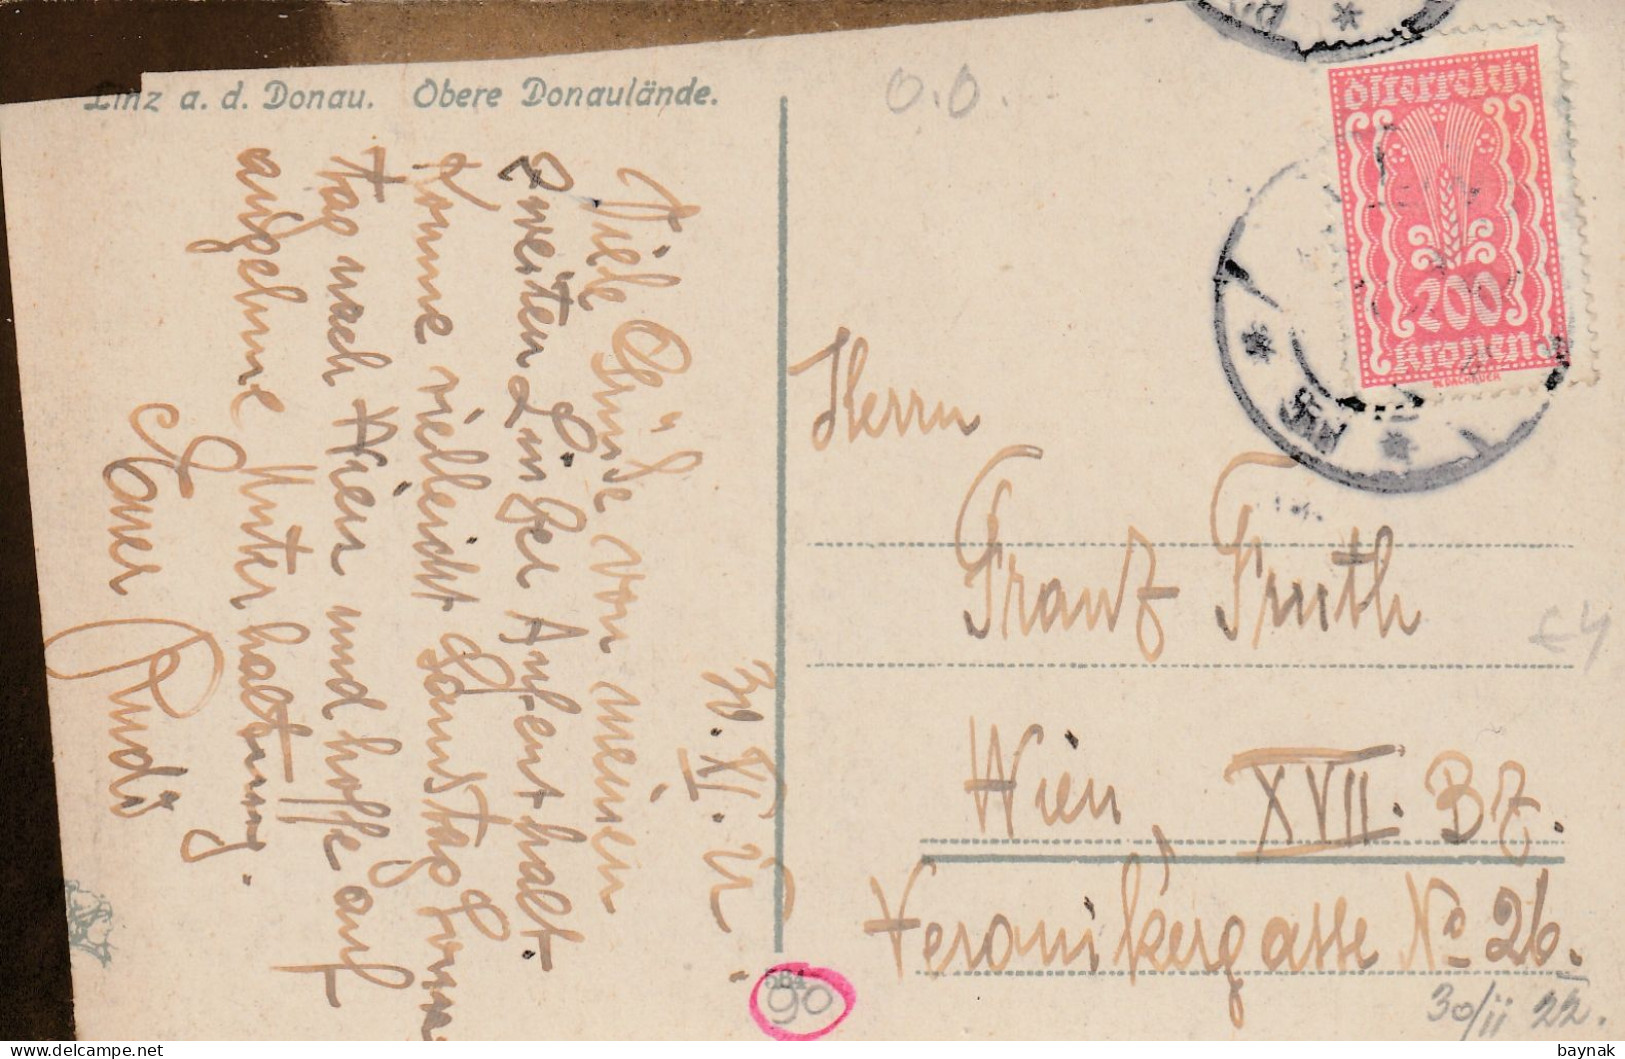 Linz a. d. Donau. Obere Donaulände.
O.Ö.
30. XI. 22.
Viele Grüße von meinen
zweiten Linzer Aufenthalt.
Komme vielleicht Samstag Sonn
tag nach Wien und hoffe auf
angehme Unterhaltung.
Rudi
Österreich
200
Kronen
Herrn
Franz Fruth
Wien, XVII. Bz.
Veronikergasse No 26.
584
90
£4
30/ii 22.
baynak